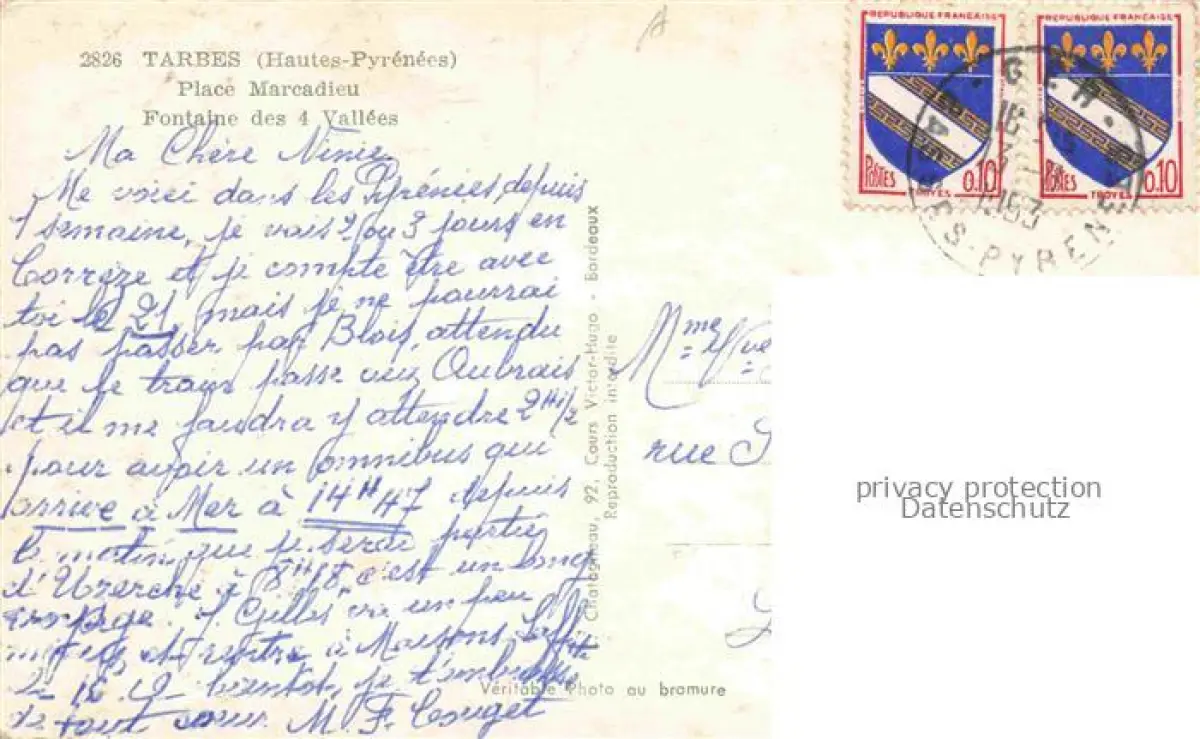 2826 TARBES (Hautes-Pyrénées)
Place Marcadieu
Fontaine des 4 Vallées
Ma Chère Ninie
Me voici dans les Pyrénées, depuis
1 semaine, je vais 2 ou 3 jours en
Corrèze et je compte être avec
toi le 21, mais je ne pourrai
pas passer par Blois, attendu
que le train passe aux Aubrais
et il me faudra y attendre 2H1/2
pour avoir un omnibus qui
arrive à Mer à 14H47 depuis
le matin que je serai partie
d'Uzerche à 8H18, c'est un long
voyage. J. Gilles va un peu
mieux et rentre à Maisons Laffitte
le 18. A bientôt, je t'embrasse
de tout cœur M. F. Couget
REPUBLIQUE FRANÇAISE
POSTES 0.10
TROYES
REPUBLIQUE FRANÇAISE
POSTES 0.10
TROYES
1963
ES-PYREN
Chatagneau, 92, Cours Victor-Hugo - Bordeaux
Reproduction interdite
Mme Vve
rue
privacy protection
Datenschutz
Véritable Photo au bromure